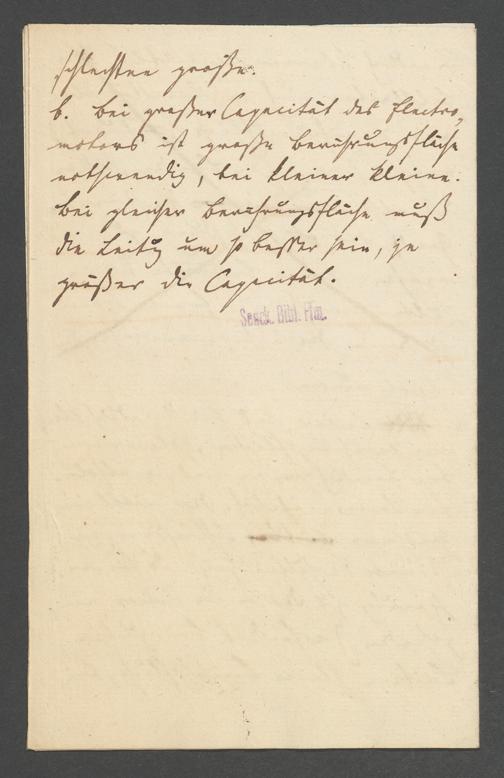 schlechten große.
b. Bei großer Capacität des Electro„
motors ist große Berührungsfläche
nothwendig, bei kleiner kleine.
Bei gleicher Berührungsfläche muß
die Leitg um so besser sein, je
größer die Capacität.
Senck. Bibl. Ffm.